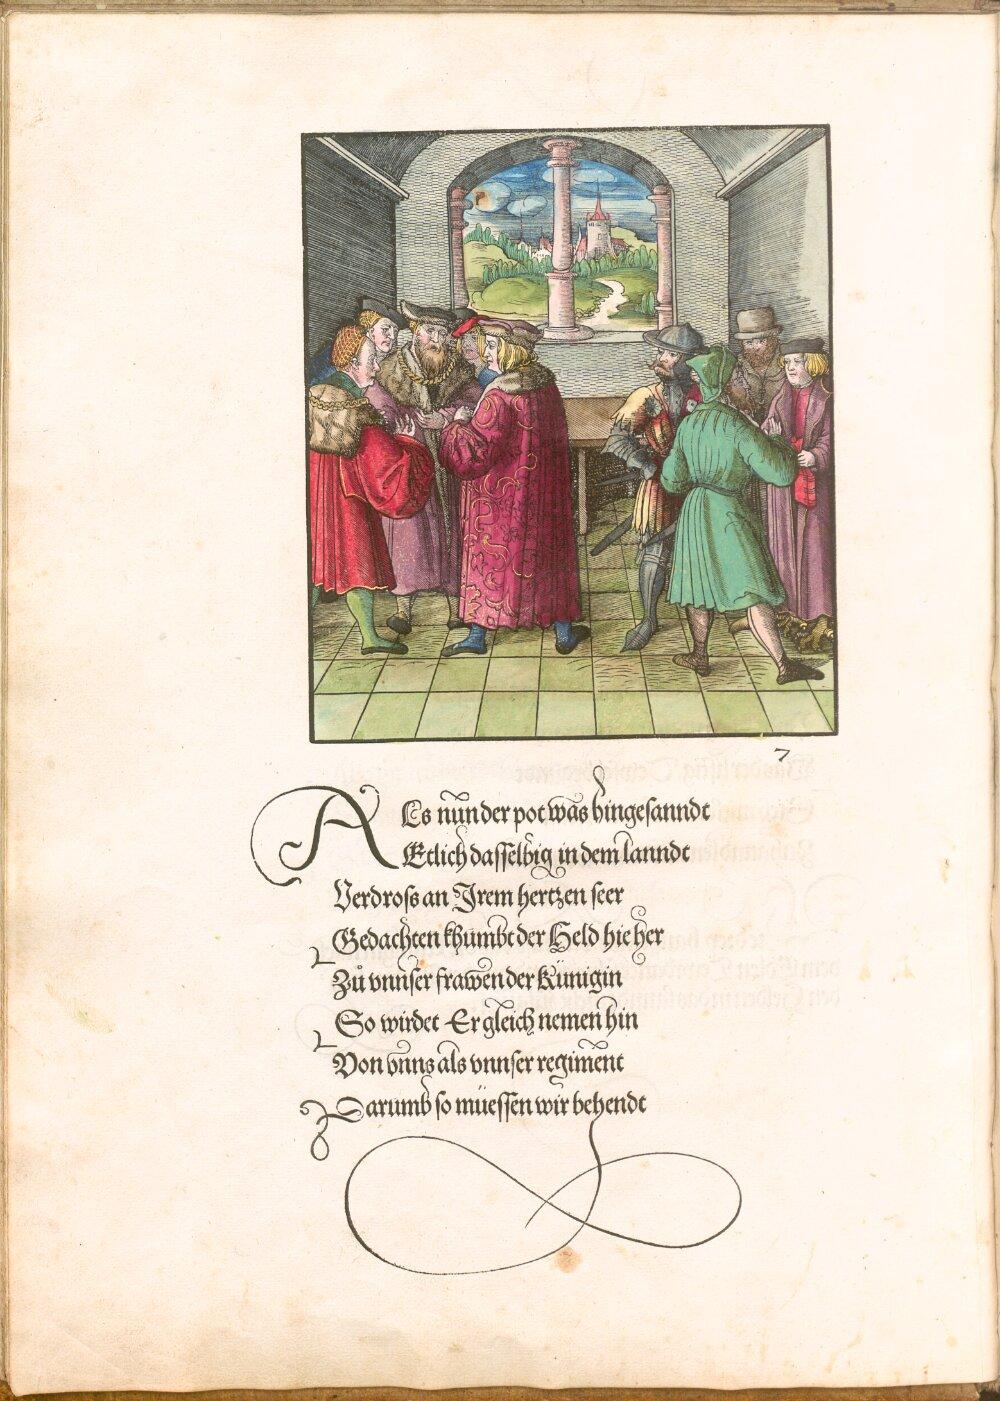 7
Als nŭn der pot was hingesanndt
Etlich dasselbig in dem lanndt
Verdross an Irem hertzen seer
Gedachten khumbt der Held hie her
Zů vnnser frawen der Künigin
So wirdet Er gleich nemen hin
Von vnns als vnnser regiment
Darumb so müessen wir behendt